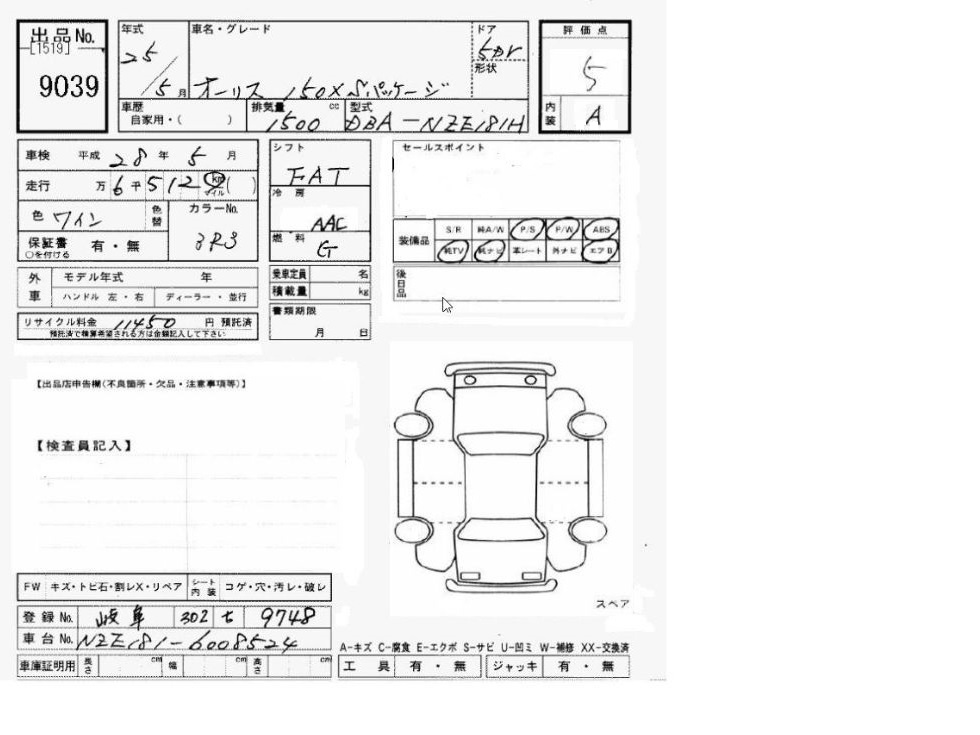 出品No.
[1519]
9039
年式
25/5月
車名・グレード
オーリス 150X Sパッケージ
ドア
5DR
形状
評価点
5
内装 A
車歴
自家用・( )
排気量 cc
1500
型式
DBA-NZE181H
車検 平成 28年 5月
走行 万6千512 km マイル ( )
色 ワイン
色替
カラーNo.
3R3
保証書 有・無
○を付ける
シフト
FAT
冷房
AAC
燃料
G
セールスポイント
装備品
S/R 純A/W P/S P/W ABS
純TV 純ナビ 革シート 外ナビ エアB
後日品
外車
モデル年式 年
ハンドル 左・右 ディーラー・並行
乗車定員 名
積載量 kg
リサイクル料金 11450 円 預託済
預託済で積算希望される方は金額記入して下さい
書類期限
月 日
【出品店申告欄(不良箇所・欠品・注意事項等)】
【検査員記入】
スペア
FW キズ・トビ石・割レX・リペア
シート内装 コゲ・穴・汚レ・破レ
登録No. 岐阜 302 ち 9748
車台No. NZE181-6008524
車庫証明用 長さ cm 幅 cm 高さ cm
A-キズ C-腐食 E-エクボ S-サビ U-凹ミ W-補修 XX-交換済
工具 有・無 ジャッキ 有・無